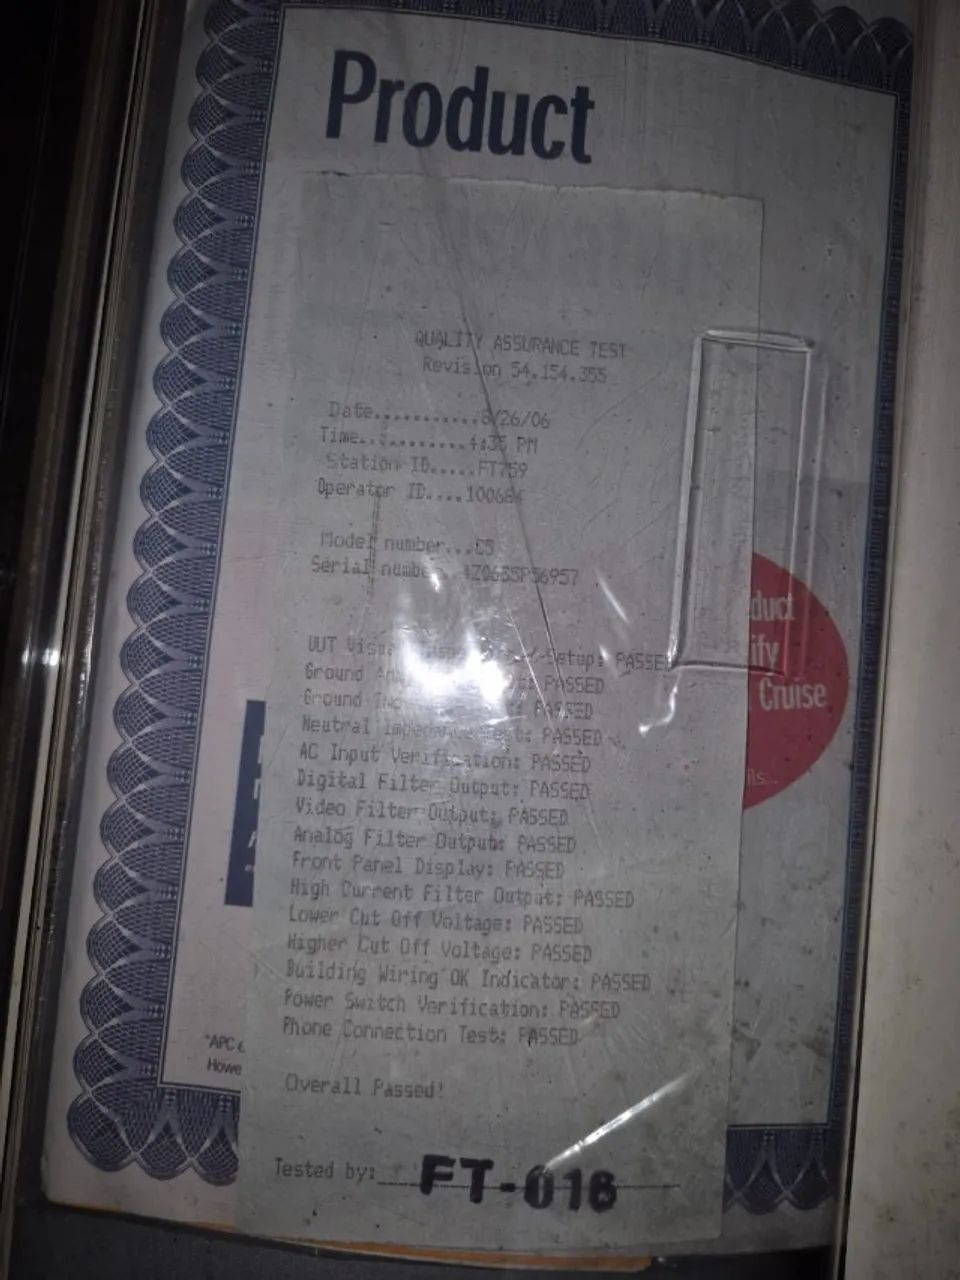 Product
QUALITY ASSURANCE TEST
Revision 54.154.355
Date...........8/26/06
Time...........4:35 PM
Station ID.....FT759
Operator ID....100684
Model number...C5
Serial number..4Z0635P56957
UUT Visual Setup: PASSED
Ground PASSED
Ground PASSED
Neutral Impedance Test: PASSED
AC Input Verification: PASSED
Digital Filter Output: PASSED
Video Filter Output: PASSED
Analog Filter Output: PASSED
Front Panel Display: PASSED
High Current Filter Output: PASSED
Lower Cut Off Voltage: PASSED
Higher Cut Off Voltage: PASSED
Building Wiring OK Indicator: PASSED
Power Switch Verification: PASSED
Phone Connection Test: PASSED
Overall Passed!
Tested by: FT-016
duct
ify
Cruise
ils...
*APC
Howe